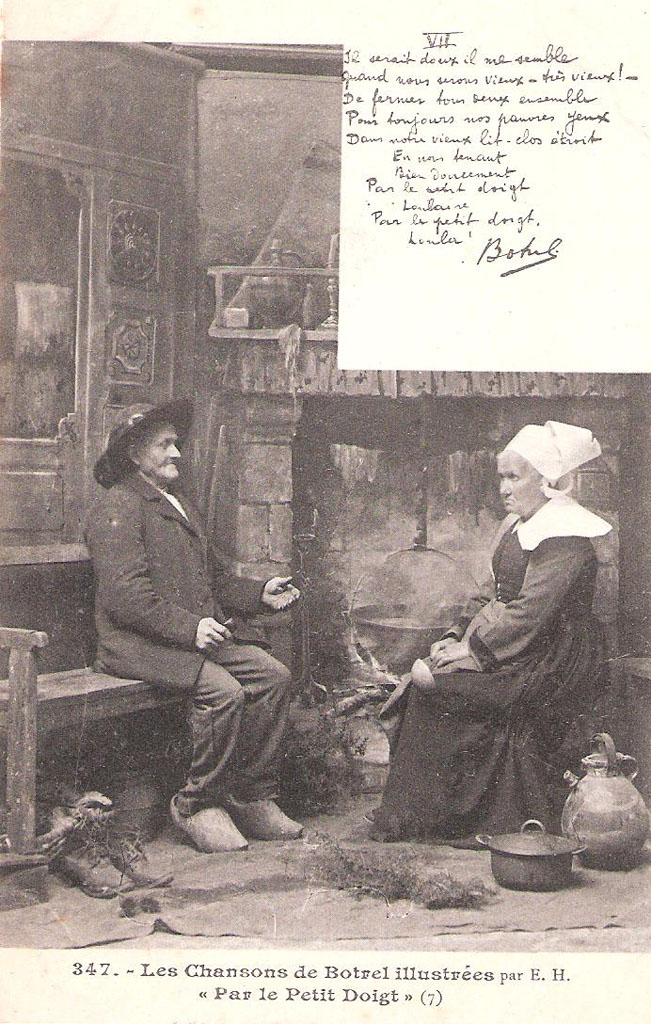 VII
Il serait doux il me semble
quand nous serons vieux - très vieux! -
De fermer tous deux ensemble
Pour toujours nos pauvres yeux
Dans notre vieux lit-clos étroit
En nous tenant
Bien doucement
Par le petit doigt
Lonlaire
Par le petit doigt,
Lonla!
Botrel
347. - Les Chansons de Botrel illustrées par E. H.
« Par le Petit Doigt » (7)